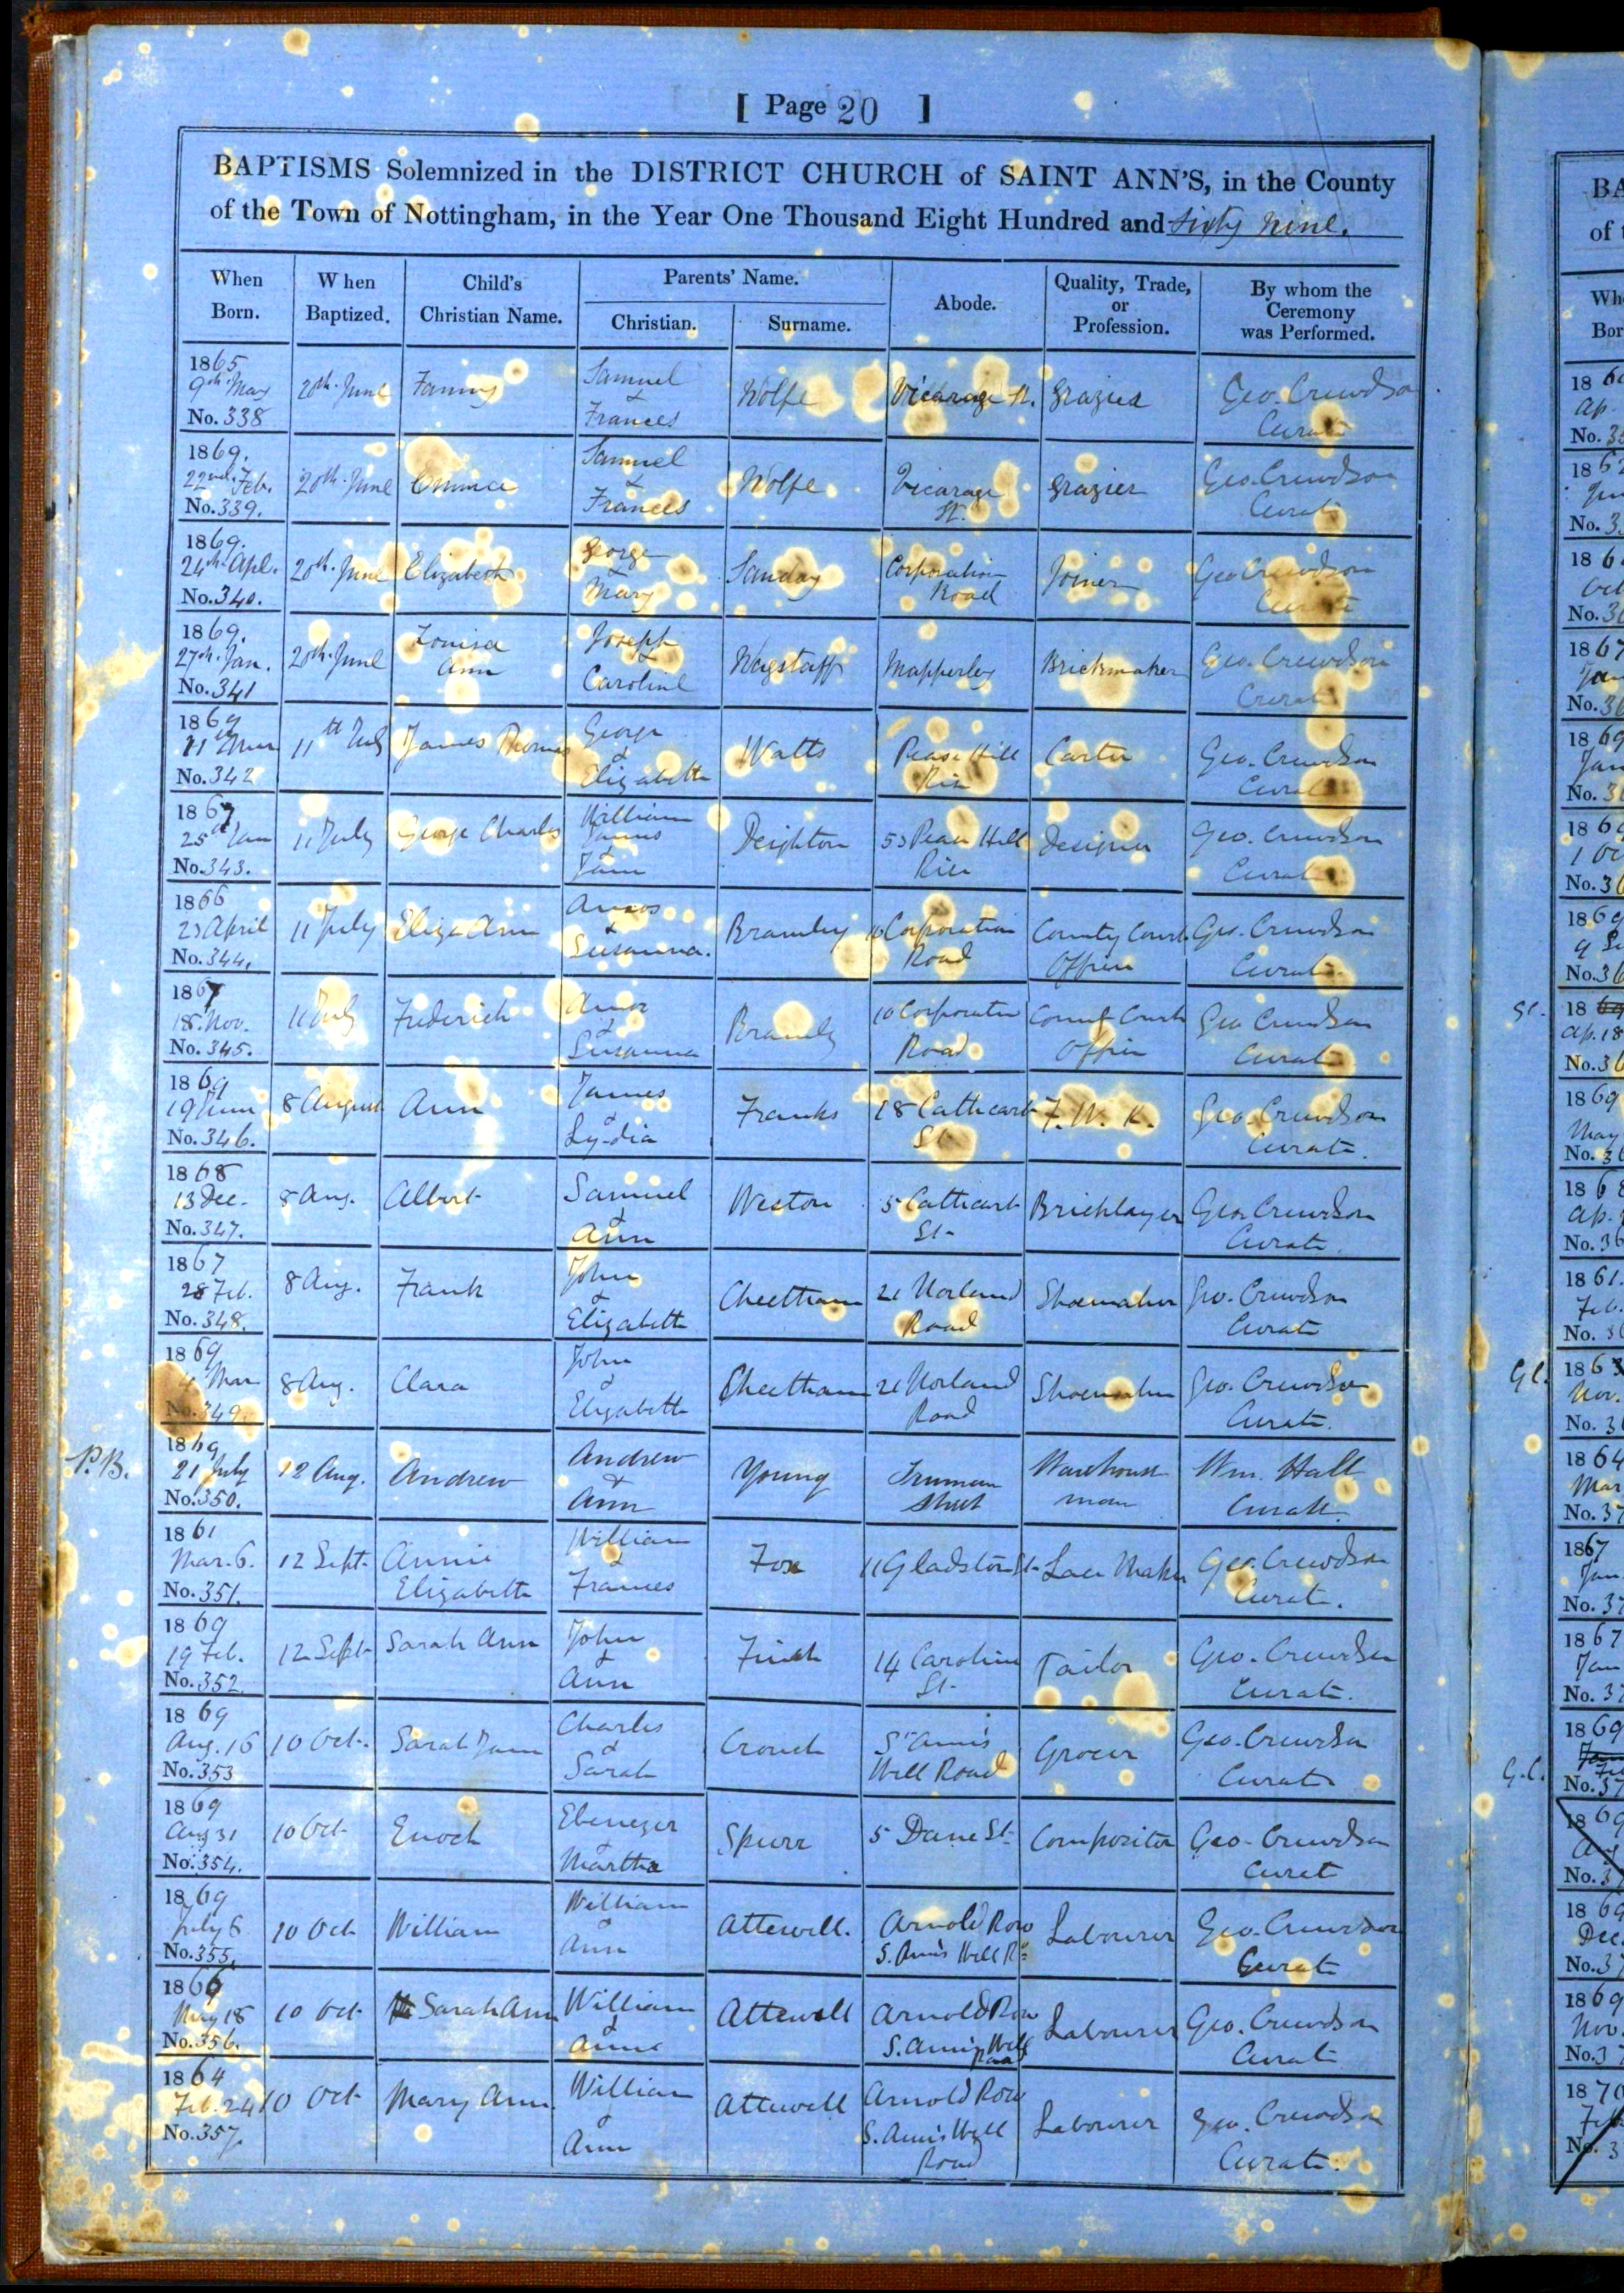 [ Page 20 ]
BAPTISMS Solemnized in the DISTRICT CHURCH of SAINT ANN'S, in the County
of the Town of Nottingham, in the Year One Thousand Eight Hundred and sixty nine.
When Born. When Baptized. Child's Christian Name. Parents' Name. Christian. Surname. Abode. Quality, Trade, or Profession. By whom the Ceremony was Performed.
1865 9th May No. 338 20th June Fanny Samuel & Frances Wolfe Vicarage St. Grazier Geo. Crewdson Curate
1869. 22nd Feb. No. 339. 20th June Samuel & Frances Wolfe Vicarage St. Grazier Geo. Crewdson Curate
1869. 24th Apl. No. 340. 20th June Elizabeth George & Mary Sanday Corporation Road Joiner Geo Crewdson Curate
1869. 27th Jan. No. 341 20th June Louisa Ann Joseph & Caroline Wagstaff Mapperley Brickmaker Geo. Crewdson Curate
1869 11th Mar No. 342 11th July James Thomas George & Elizabeth Watts Pease Hill Rise Carter Geo. Crewdson Curate
1867 25th Jan No. 343. 11 July George Charles William James & Jane Deighton 53 Pease Hill Rise Designer Geo. Crewdson Curate
1866 23 April No. 344. 11 July Eliza Ann Amos & Susanna. Bramley 10 Corporation Road County Court Officer Geo. Crewdson Curate
1867 18. Nov. No. 345. 11 July Frederick Amos & Susanna Bramley 10 Corporation Road County Court Officer Geo Crewdson Curate
1869 19 June No. 346. 8 August Ann James & Lydia Franks 18 Cathcart St F. W. K. Geo. Crewdson Curate.
1868 13 Dec. No. 347. 8 Aug. Albert Samuel & Ann Weston 5 Cathcart St. Bricklayer Geo. Crewdson Curate.
1867 28 Feb. No. 348. 8 Aug. Frank John & Elizabeth Cheetham 21 Norland Road Shoemaker Geo. Crewdson Curate
1869 4 Mar No. 349. 8 Aug. Clara John & Elizabeth Cheetham 21 Norland Road Shoemaker Geo. Crewdson Curate.
P.B. 1869 21 July No. 350. 12 Aug. Andrew Andrew & Ann Young Truman Street Warehouse man Wm. Hall Curate.
1861 Mar. 6. No. 351. 12 Sept. Annie Elizabeth William & Frances Fox 11 Gladstone St. Lace Maker Geo. Crewdson Curate.
1869 19 Feb. No. 352. 12 Sept Sarah Ann John & Ann Finch 14 Caroline St. Tailor Geo. Crewdson Curate.
1869 Aug. 16 No. 353 10 Oct. Sarah Jane Charles & Sarah Crouch St Ann's Well Road Grocer Geo. Crewdson Curate
1869 Aug 31 No. 354. 10 Oct Enoch Ebenezer & Martha Spurr 5 Dane St. Compositor Geo. Crewdson Curat
1869 July 6 No. 355. 10 Oct William William & Ann Attewell. Arnold Row S. Ann's Well Rd Labourer Geo. Crewdson Curate
1866 May 18 No. 356. 10 Oct Sarah Ann William & Anne Attewell Arnold Row S. Ann's Well Road Labourer Geo. Crewdson Curate
1864 Feb. 24 No. 357. 10 Oct Mary Ann William & Ann Attewell Arnold Row S. Ann's Well Road Labourer Geo. Crewdson Curate.